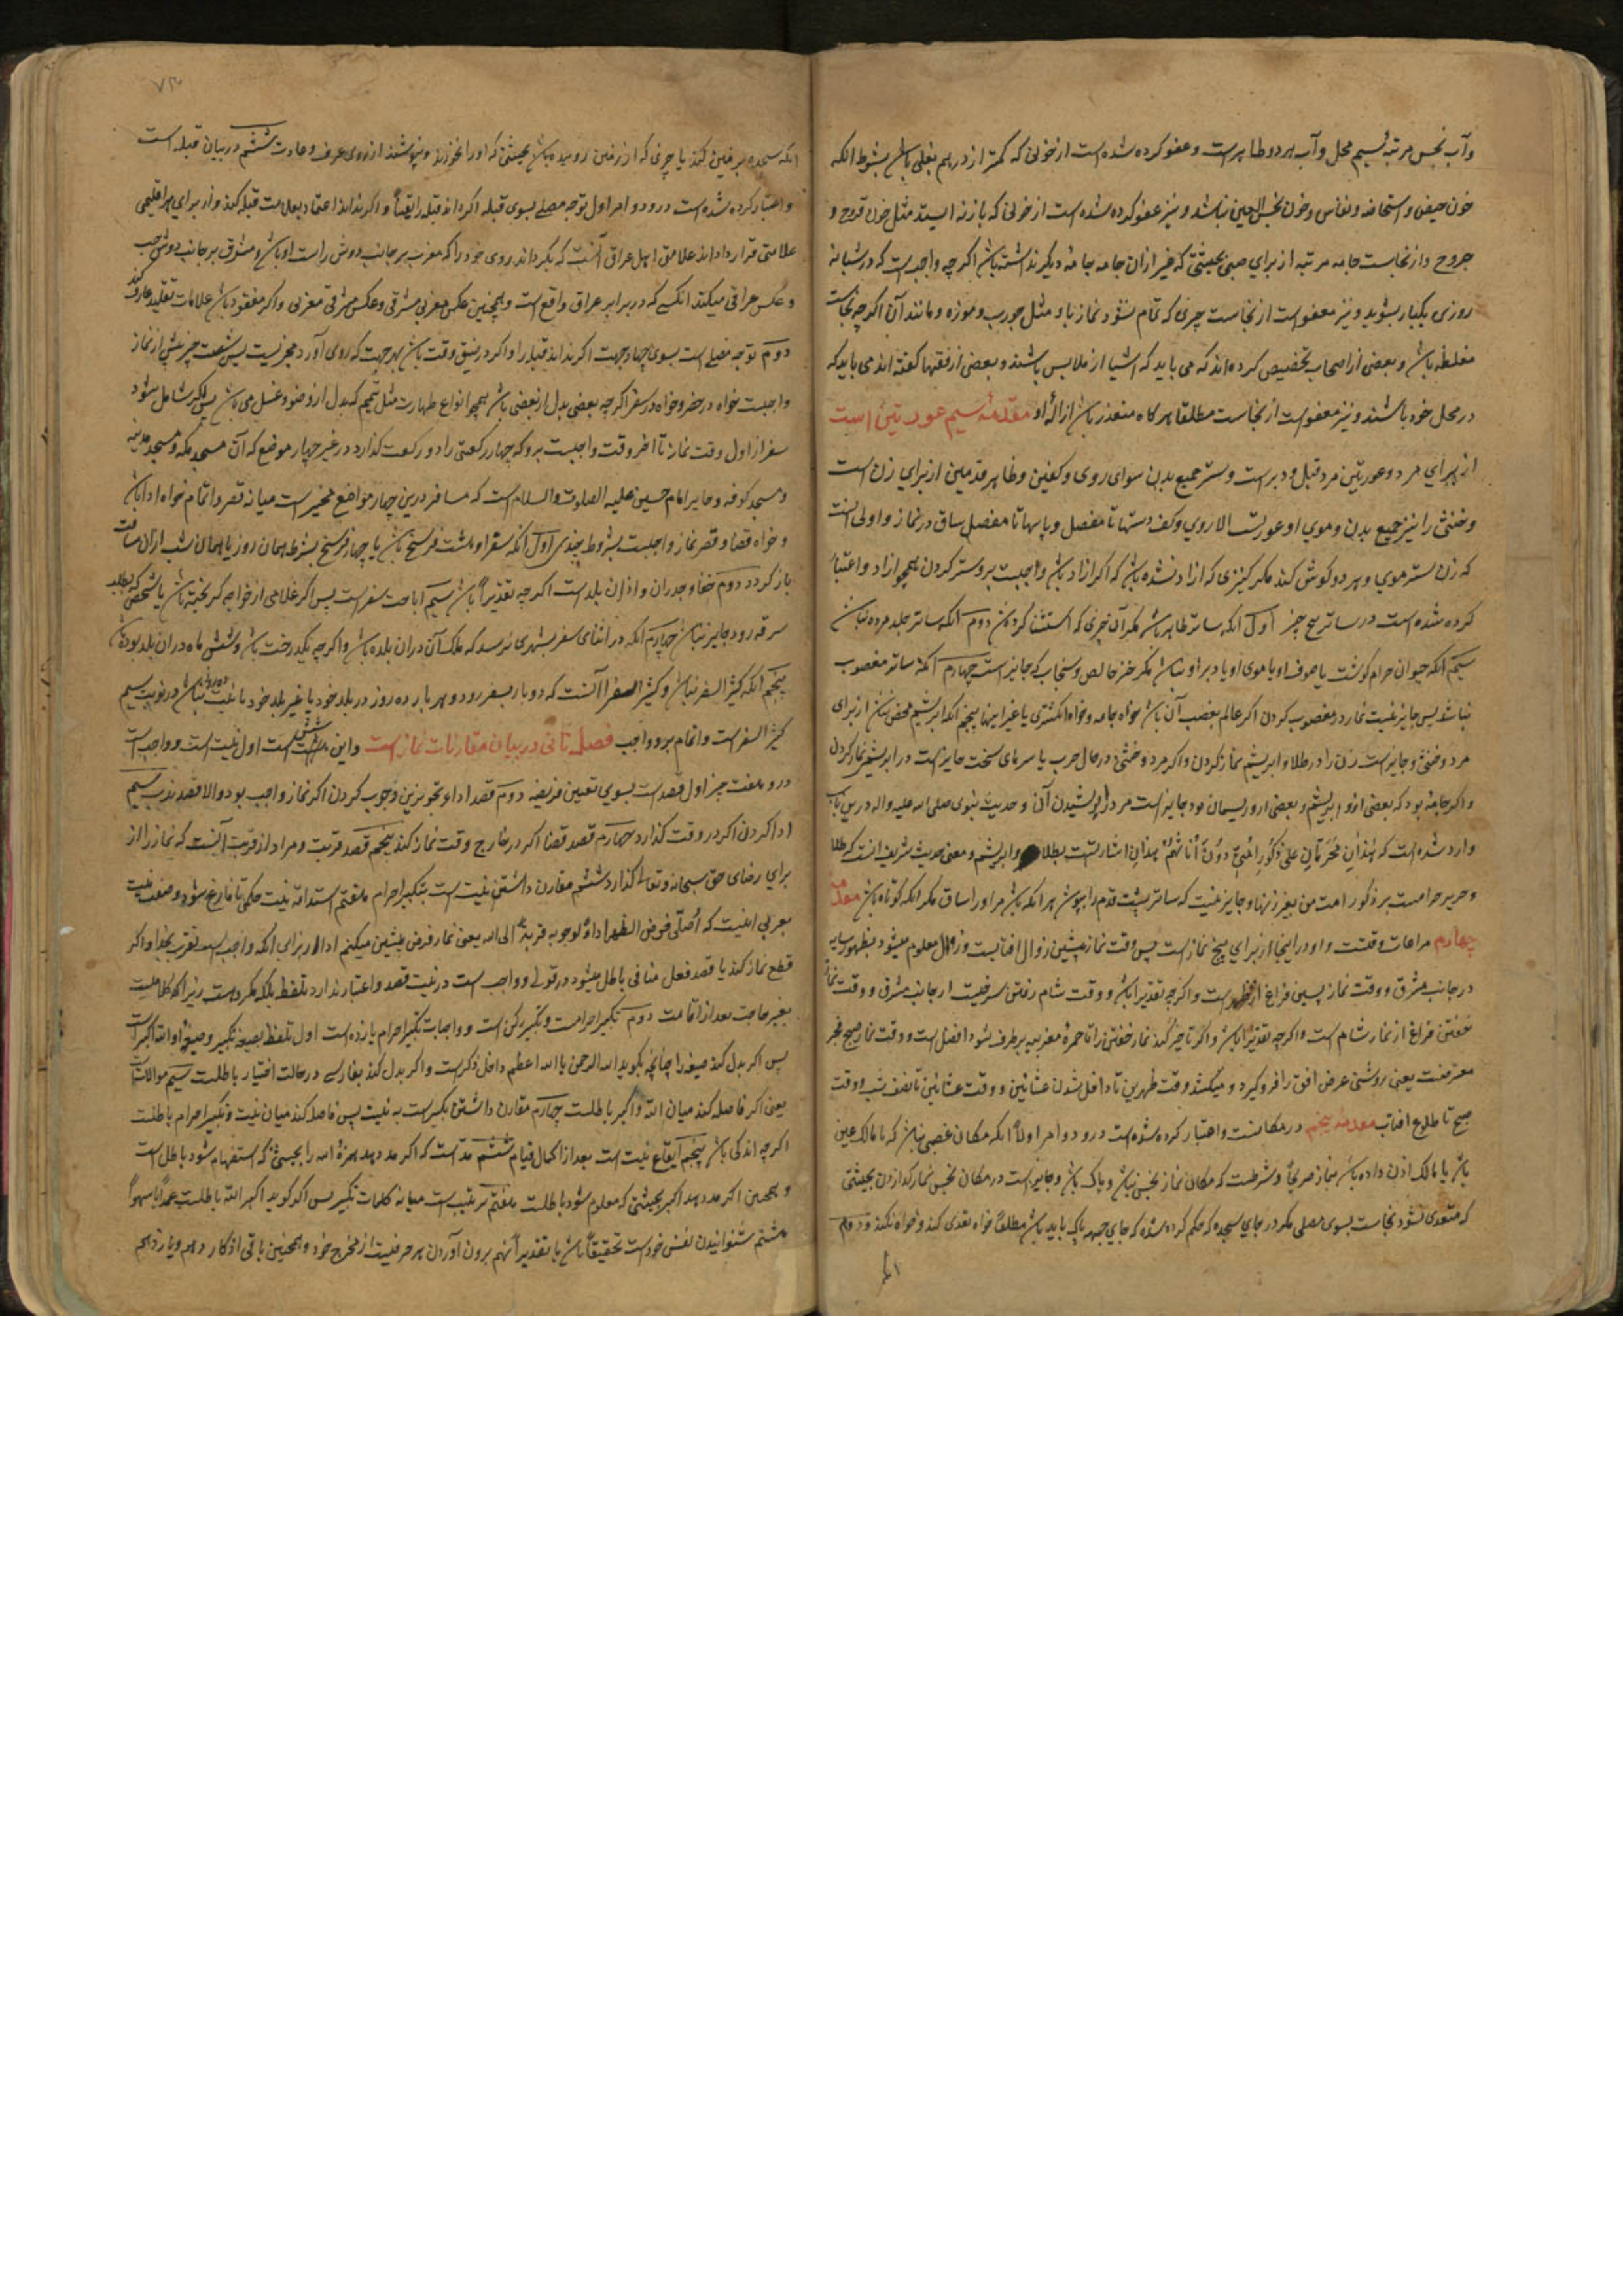 وآب نجس مرتبه سیم محل وآب هر دو طاهر است و عفو کرده شده است از خونی که کمتر از درهم بغلی باشد بشرط انکه
خون حیض و استحاضه و نفاس و خون نجس العین نباشد و نیز عفو کرده شده است از خونی که باز نه ایستد مثل خون قروح و
جروح و از نجاست جامه مرتبه از برای صبی بحیثیتی که غیر ازان جامه جامهٔ دیگر نداشته باشد اگرچه واجب است که در شبانه
روزی یکبار بشوید و نیز معفو است از نجاست چیزی که تمام نشود نماز باو مثل جورب و موزه و مانند آن اگرچه نجاست
مغلظه باشد و بعضی از اصحاب تخصیص کرده اند که می باید که اشیا از ملابس باشند و بعضی از فقها گفته اند می باید که
در محل خود باشند و نیز معفو است از نجاست مطلقا هرگاه متعذر باشد ازالهٔ او مقدمه سیم عورتین است
از برای مرد و عورتین مرد قبل و دبر است و ستر جمیع بدن سوای روی و کفین و ظاهر قدمین از برای زن است
و خنثی را نیز جمیع بدن و موی او عورت الا روی و کف دستها تا مفصل و پاها تا مفصل ساق در نماز و اولی انست
که زن ستر موی و هر دو گوش کند مگر کنیزی که ازاد نشده باشد که اگر ازاد باشد واجبست برو ستر کردن همچو ازاد و اعتبار
کرده شده است در ساتر پنج چیز اول انکه ساتر طاهر باشد مگر آن چیزی که استثنا کرده شد دوم انکه ساتر جلد مرده نباشد
سیم انکه حیوان حرام گوشت یا صوف او یا موی او یا دبر او نباشد مگر خز خالص و سنجاب که جایز است چهارم انکه ساتر مغصوب
نباشد پس جایز نیست نماز در مغصوب کردن اگر عالم بغصب آن باشد خواه جامه و خواه انگشتری یا غیر اینها پنجم انکه ابریشم محض نباشد از برای
مرد و خنثی و جایز است زن را در طلا و ابریشم نماز کردن و اگر مرد و خنثی در حال حرب یا سرمای سخت جایز است در ابریشم نماز کردن
و اگر جامهٔ بود که بعضی از و ابریشم و بعضی از و ریسمان بود جایز است مرد را پوشیدن آن و حدیث نبوی صلی الله علیه واله درین باب
وارد شده است که هذان محرمان علی ذکور امتی دون اناثهم بهذان اشارتست بطلا وابریشم و معنی حدیث شریف انست که طلا
و حریر حرامست بر ذکور امت من بغیر زنها و جایز نیست که ساتر پشت قدم را بپوشد بر انکه باشد مر اورا ساق مگر انکه کوتاه باشد مقدمه
چهارم مراعات وقتست و او در اینجا از برای پنج نماز است پس وقت نماز پیشین زوال افتابست و زوال معلوم میشود بظهور سایه
در جانب مشرق و وقت نماز پسین فراغ از ظهر است و اگرچه تقدیرا باشد و وقت شام رفتن سرخیست از جانب مشرق و وقت نماز
خفتن فراغ از نماز شام است و اگرچه تقدیرا باشد و اگر تاخیر کند نماز خفتن را تا حمره مغربیه برطرف شود افضل است و وقت نماز صبح فجر
معترضست یعنی روشنی عرض افق را فرو گیرد و میکشد وقت ظهرین تا داخل شدن عشائین و وقت عشائین تا نصف شب و وقت
صبح تا طلوع افتاب مقدمه پنجم در مکانست و اعتبار کرده شده است درو دو امر اولا انکه مکان غصبی نباشد که تا مالک عین
باشد یا مالک اذن داده باشد بنماز صریحا و شرطست که مکان نماز نجس نباشد و پاک باشد و جایز است در مکان نجس نماز گذاردن بحیثیتی
که متعدی نشود نجاست بسوی مصلی مگر در جای سجده که حکم کرده شده که جای جبهه پاک باید باشد مطلقا خواه تعدی کند و خواه نکند و دوم
انکه سجده بر زمین کند یا چیزی که از زمین روییده باشد بحیثیتی که اورا نخورند و نپوشند از روی عرف و عادت ششم در بیان قبله است
و اعتبار کرده شده است درو دو امر اول توجه مصلی بسوی قبله اگر داند قبله را یقینا و اگر نداند اعتماد بعلامت قبله کند و از برای هر اقلیمی
علامتی قرار داده اند علامت اهل عراق آنست که بگرداند روی خود را که مغرب بر جانب دوش راست او باشد و مشرق بر جانب دوش چپ
و عکس عراقی میکند انکسی که در برابر عراق واقع است و همچنین عکس مغربی مشرقی و عکس مشرقی مغربی و اگر مفقود باشد علامات تقلید عارف کند
دوم توجه مصلی است بسوی چهار جهت اگر نداند قبله را و اگر در ضیق وقت باشد بهر جهت که روی آورد مجزیست پس شصت چیز پیش از نماز
واجبست خواه در حضر و خواه در سفر اگرچه بعضی بدل از بعضی باشد همچو انواع طهارت مثل تیمم که بدل از وضو و غسل می باشد پس اگر شامل شود
سفر از اول وقت نماز تا اخر وقت واجبست برو که چهار رکعتی را دو رکعت گذارد در غیر چهار موضع که آن مسجد مکه و مسجد مدینه
و مسجد کوفه و حایر امام حسین علیه الصلوت والسلام است که مسافر درین چهار مواضع مخیر است میانه قصر و اتمام خواه ادا باشد
و خواه قضا و قصر نماز واجبست بشروط پنجی اول انکه سفر او هشت فرسخ باشد یا چهار فرسخ بشرط همان روز یا همان شب ازان مسافت
باز گردد دوم خفاء جدران و اذان بلد است اگرچه تقدیرا باشد سیم اباحت سفر است پس اگر غلامی از خواجه گریخته باشد یا شخصی که بطلب
سرقه رود جایز نباشد چهارم انکه در اثنای سفر بشهری نرسد که ملک آن دران بلده باشد و اگرچه یکدرخت باشد و شش ماه دران بلد بوده باشد
پنجم انکه کثیر السفر نباشد و کثیر السفر آنست که دو بار بسفر رود و هر بار ده روز در بلد خود یا غیر بلد خود با نیت نباشد در نوبت سیم
کثیر السفر است و اتمام برو واجب فصل ثانی در بیان مقارنات نماز است و این هشت است اول نیت است و واجب است
درو هفت چیز اول قصد است بسوی تعیین فریضه دوم قصد اداء سیم وجوب کردن اگر نماز واجب بود والا قصد ندب سیم
ادا کردن اگر در وقت گذارد چهارم قصد قضا اگر در خارج وقت نماز کند پنجم قصد قربت و مراد از قربت آنست که نماز را از
برای رضای حق سبحانه وتعالی گذارد ششم مقارن داشتن نیت است بتکبیر احرام هفتم استدامه نیت حکمی تا فارغ شود و صفت نیت
بعربی اینست که اصلی فرض الظهر اداء لوجوبه قربة الی الله یعنی نماز فرض پیشین میکنم ادا از برای انکه واجب است تقرب بخدا و اگر
قطع نماز کند یا قصد فعل منافی باطل میشود در قولی و واجب است در نیت قصد و اعتبار ندارد تلفظ بلکه مکروهست زیرا که کلامیست
بغیر حاجت بعد از اقامت دوم تکبیر احرامست و تکبیر رکن است و واجبات تکبیر احرام یازده است اول تلفظ بصیغه تکبیر و صیغه او الله اکبر است
پس اگر بدل کند صیغه را چنانچه بگوید الله الرحمن یا الله اعظم داخل ذکرست و اگر بدل کند بفارسی در حالت اختیار باطلست سیم موالات
یعنی اگر فاصله کند میان الله و اکبر باطلست چهارم مقارن داشتن تکبیرست به نیت پس فاصله کند میان نیت و تکبیر احرام باطلست
اگرچه اندکی باشد پنجم ایقاع نیت است بعد از اکمال قیام ششم مد است که اگر مد دهد همزهٔ الله را بحیثیتی که استفهام شود باطل است
و همچنین اگر مد دهد اکبر بحیثیتی که معلوم شود باطلست هفتم ترتیب است میانه کلمات تکبیر پس اگر گوید اکبر الله باطلست عمدا یا سهوا
هشتم شنوانیدن نفس خود است تحقیقا باشد یا تقدیرا نهم برون آوردن هر حرفیست از مخرج خود و همچنین باقی اذکار دهم و یازدهم